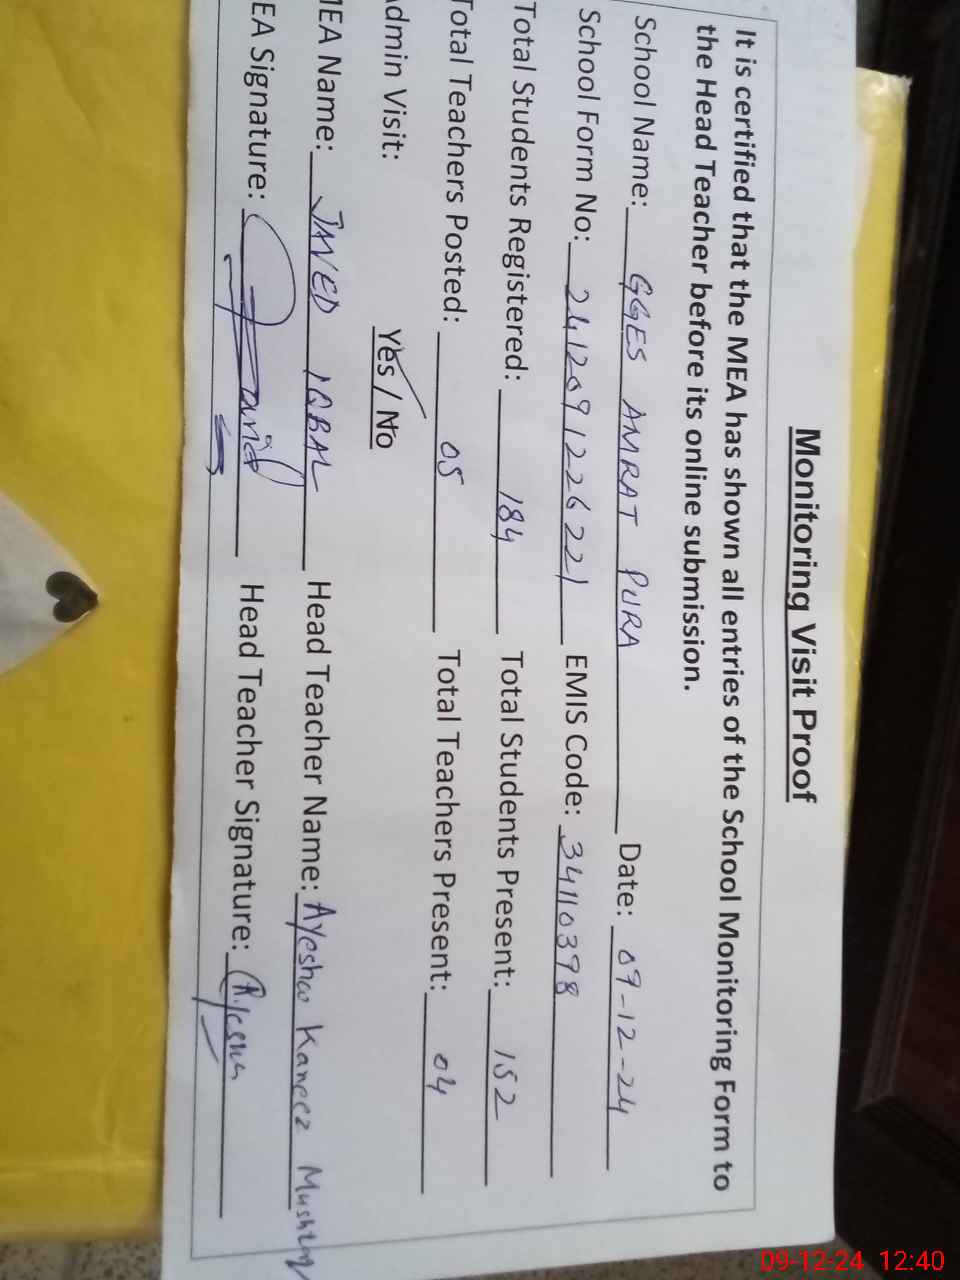 Monitoring Visit Proof
It is certified that the MEA has shown all entries of the School Monitoring Form to
the Head Teacher before its online submission.
School Name: GGES AMRAT PURA Date: 09-12-24
School Form No: 2412091226221 EMIS Code: 34110398
Total Students Registered: 184 Total Students Present: 152
Total Teachers Posted: 05 Total Teachers Present: 04
Admin Visit: Yes / No
MEA Name: JAVED IQBAL Head Teacher Name: Ayesha Kaneez
EA Signature: Javid Head Teacher Signature: Ayesha
09-12-24 12:40